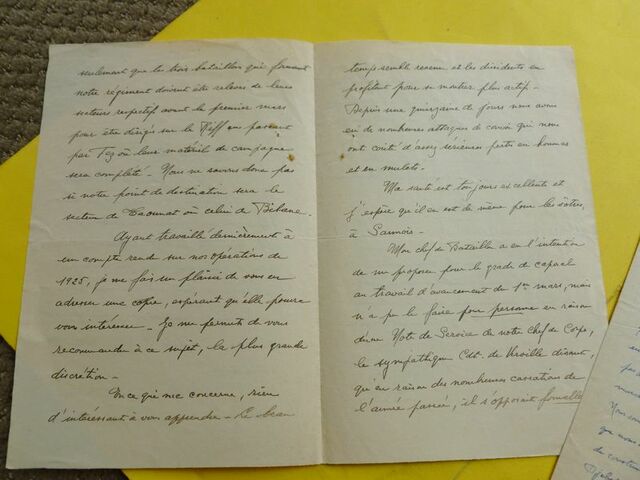 seulement que les trois bataillons qui forment
notre régiment doivent être relevés de leurs
secteurs respectif avant le premier mars
pour être dirigés sur le Riff en passant
par Fez où leur matériel de campagne
sera complété - Nous ne savons donc pas
si notre point de destination sera le
secteur de Taounat ou celui de Bibane.
Ayant travaillé dernièrement à
un compte rendu sur nos opérations de
1925, je me fais un plaisir de vous en
adresser une copie, espérant qu'elle pourra
vous intéresser - Je me permets de vous
recommander à ce sujet, la plus grande
discrétion -
En ce qui me concerne, rien
d'intéressant à vous apprendre - Le beau
temps semble revenu et les dissidents en
profitent pour se montrer plus actif -
Depuis une quinzaine de jours nous avons
eu de nombreuses attaques de convoi qui nous
ont coûté d'assez sérieuses pertes en hommes
et en mulets -
Ma santé est toujours excellente et
j'espère qu'il en est de même pour les vôtres,
à
Mon chef de Bataille a eu l'intention
de me proposer pour le grade de caporal
au travail d'avancement du 1er mars, mais
n'a pu le faire pour personne en raison
d'une Note de Service de notre Chef de Corps,
le sympathique Cdt. de disant,
qu'en raison des nombreuses cassations de
l'année passée, il s'opposait